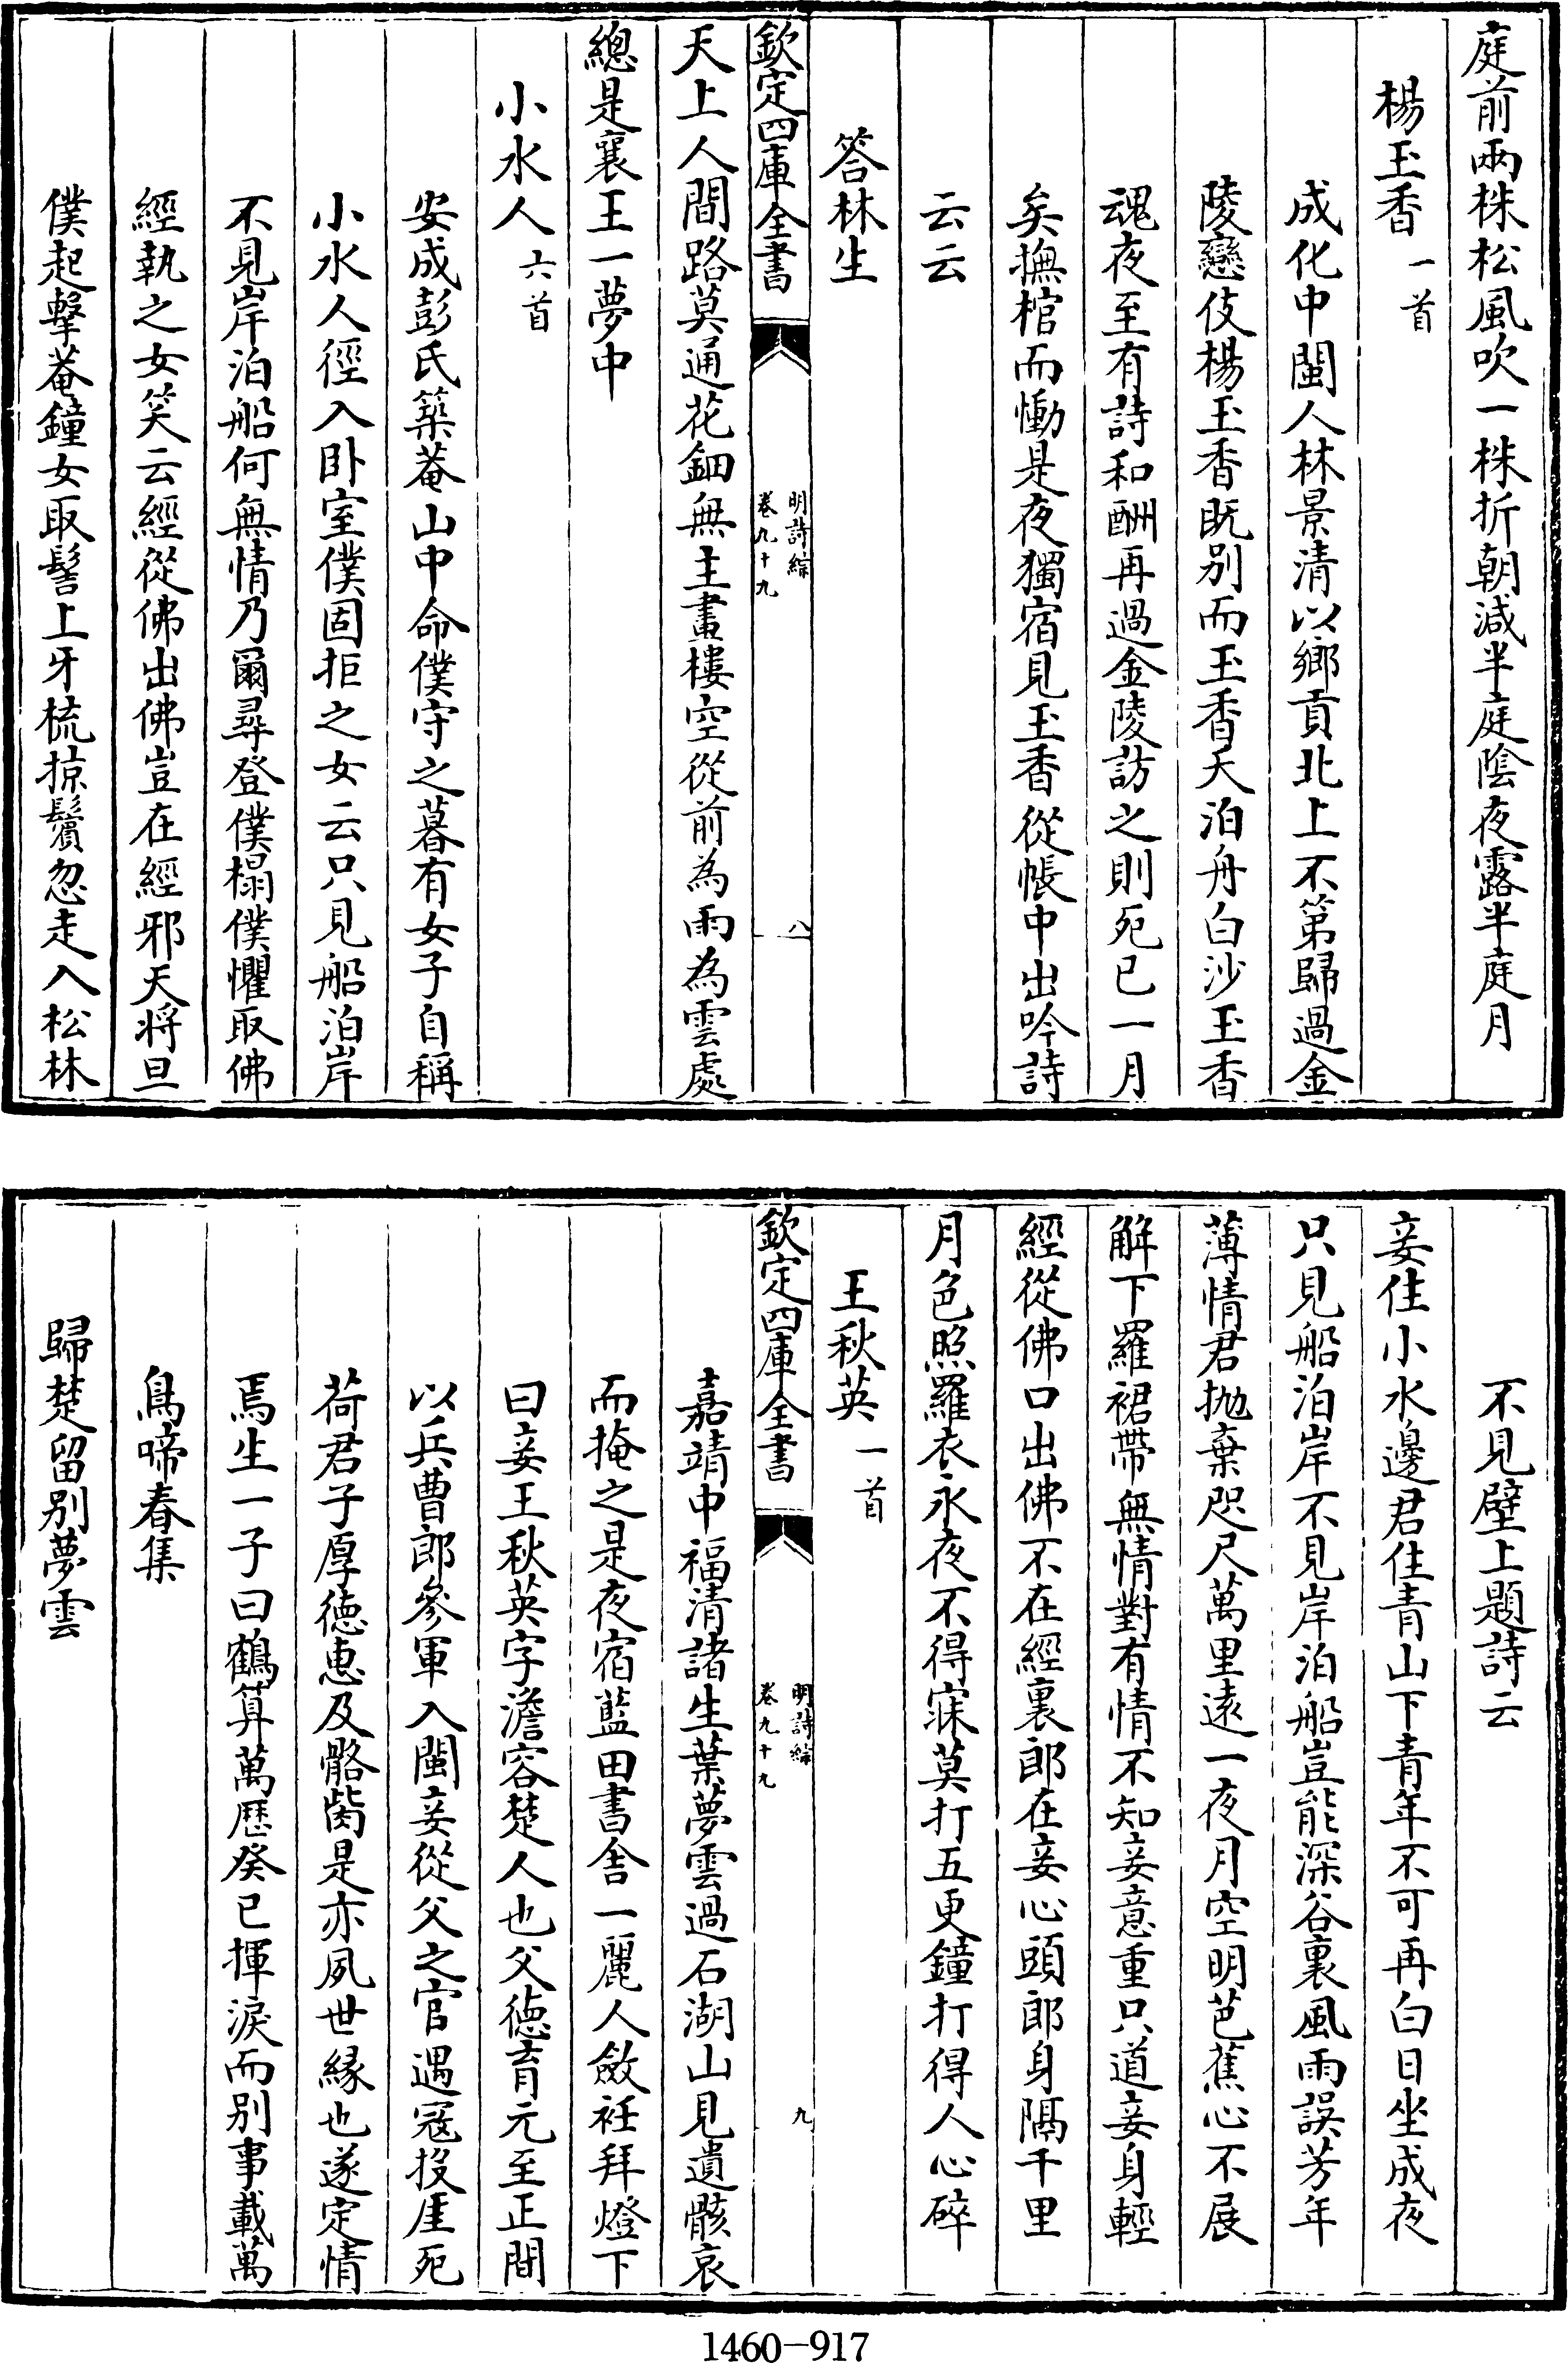 庭前兩株松風吹一株折朝減半庭陰夜露半庭月
楊玉香一首
成化中閩人林景清以鄉貢北上不第歸過金
陵戀伎楊玉香既别而玉香夭泊舟白沙玉香
魂夜至有詩和酬再過金陵訪之則死已一月
矣撫棺而慟是夜獨宿見玉香從帳中出吟詩
云云
答林生
欽定四庫全書
明詩綜
卷九十九
八
天上人間路莫通花鈿無主畫樓空從前為雨為雲處
總是襄王一夢中
小水人六首
安成彭氏築菴山中命僕守之暮有女子自稱
小水人徑入卧室僕固拒之女云只見船泊岸
不見岸泊船何無情乃爾尋登僕榻僕懼取佛
經執之女笑云經從佛出佛豈在經邪天將旦
僕起擊菴鐘女取髻上牙梳掠鬢忽走入松林
不見壁上題詩云
妾住小水邊君住青山下青年不可再白日坐成夜
只見船泊岸不見岸泊船豈能深谷裏風雨誤芳年
薄情君抛棄咫尺萬里遠一夜月空明芭蕉心不展
解下羅裙帶無情對有情不知妾意重只道妾身輕
經從佛口出佛不在經裏郎在妾心頭郎身隔千里
月色照羅衣永夜不得寐莫打五更鐘打得人心碎
王秋英一首
欽定四庫全書
明詩綜
卷九十九
九
嘉靖中福清諸生葉夢雲過石湖山見遺骸哀
而掩之是夜宿藍田書舍一麗人斂衽拜燈下
曰妾王秋英字澹容楚人也父德育元至正間
以兵曹郎參軍入閩妾從父之官遇寇投厓死
荷君子厚徳惠及骼胔是亦夙世緣也遂定情
焉生一子曰鶴算萬歷癸已揮淚而别事載萬
鳥啼春集
歸楚留别夢雲
1460-917